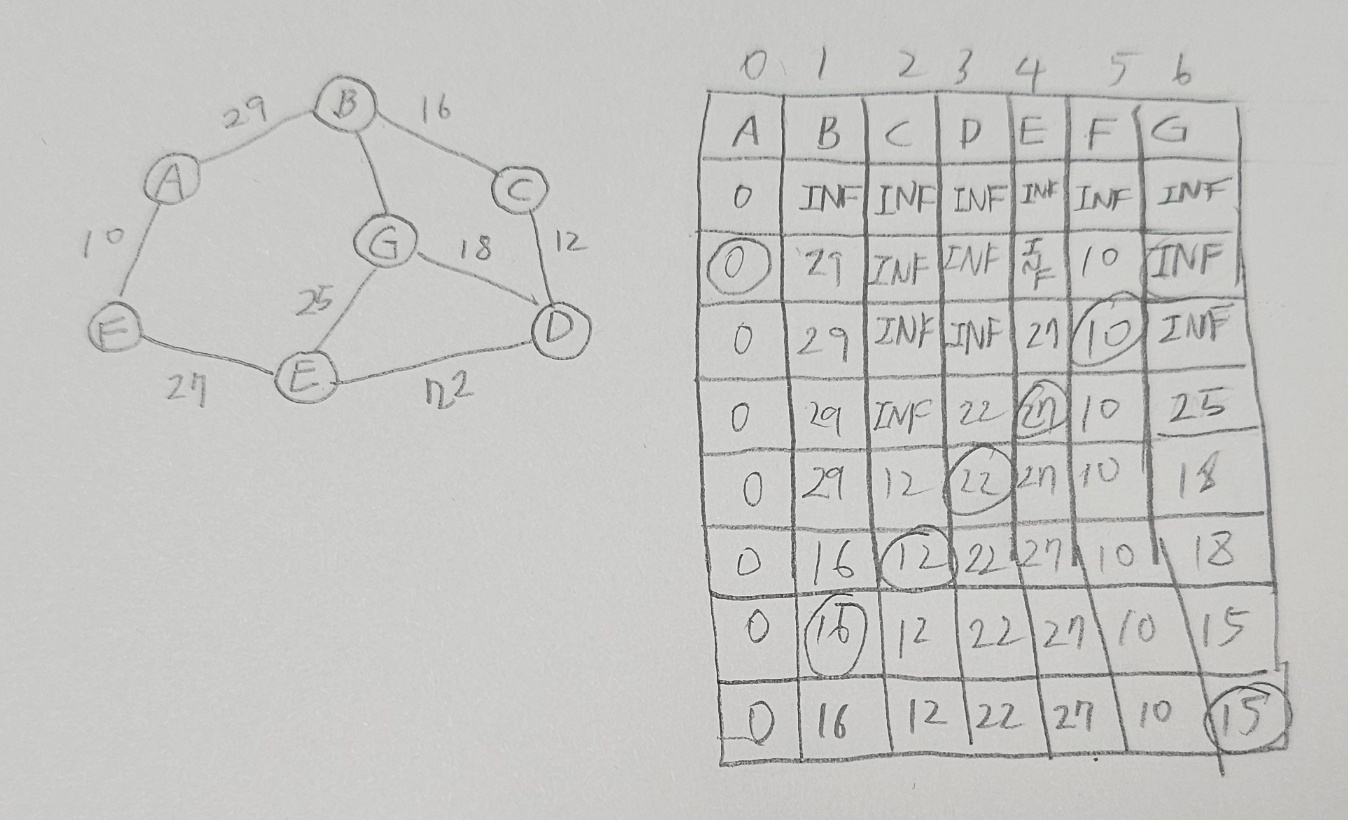 29 B 16
A C
10 G 18 12
25
F E D
27 22
0 1 2 3 4 5 6
A B C D E F G
0 INF INF INF INF INF INF
0 29 INF INF INF 10 INF
0 29 INF INF 27 10 INF
0 29 INF 22 27 10 25
0 29 12 22 27 10 18
0 16 12 22 27 10 18
0 16 12 22 27 10 15
0 16 12 22 27 10 15